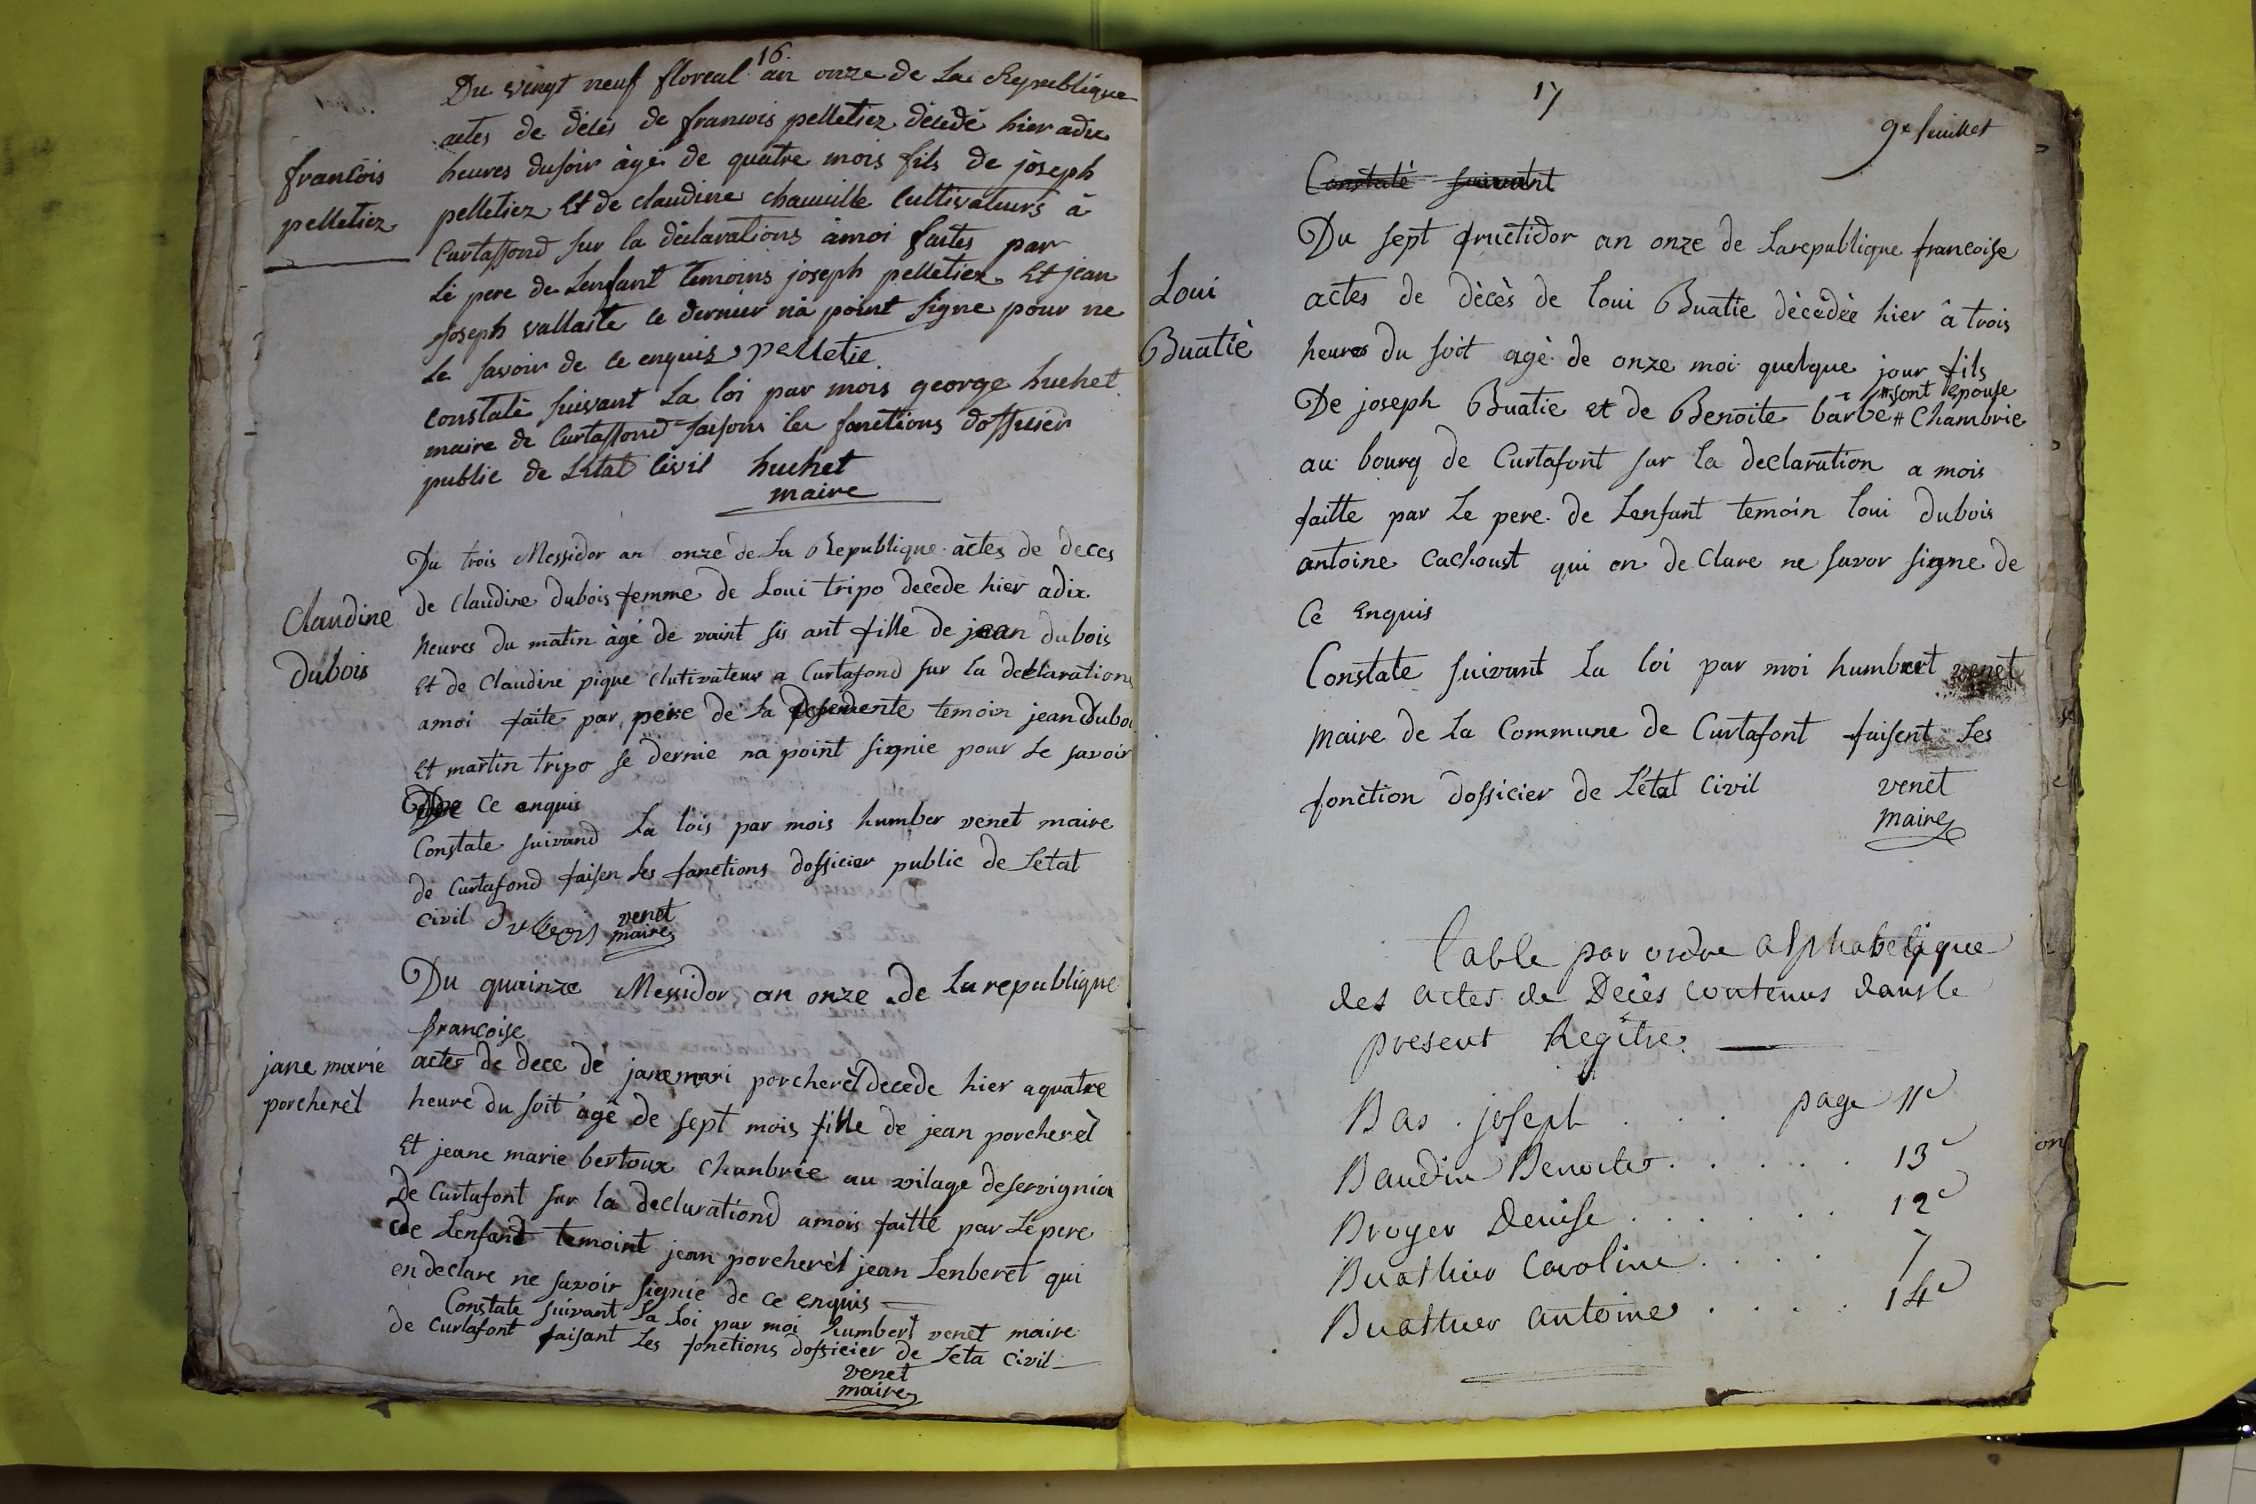 16.
Du vingt neuf floreal an onze de La Republique
actes de décès de francois pelletiez décédé hier adix
heures dusoir àgé de quatre mois fils de jòseph
pelletiez Et de claudine chamville Cultivateurs à
Curtaffond sur la déclarations àmoi faites par
Le pere de Lenfant temoins joseph pelletiez Et jean
joseph vallaite ce dernier nà point signe pour ne
Le savoir de ce enquis pelletie
francois
pelletiez
constaté suivant La loi par mois george huchet
maire de Curtaffond faisons les fonctions dofficier
public de Létat Civil huchet
maire
Du trois Messidor an onze de La Republique actes de deces
de Claudine dubois femme de Loui tripo decede hier adix
heures du matin àgé de vaint sis ant fille de jean dubois
Et de Claudine pique clutivateur a Curtafond sur la declarations
amoi faite par peire de la temoin jean Duboi
Et martin tripo se dernie na point signie pour Le savoir
De ce enquis
Claudine
Dubois
Constate suivand La lois par mois humber venet maire
de Curtafond faisen Les fanctions dofficier public de Letat
Civil Dubois venet
maire
Du quainze Messidor an onze de Larepublique
francoise
actes de dece de jane mari porcherèl decede hier aquatre
heure du soit àgé de sept mois fille de jean porcherèl
Et jeane marie bertoux chanbrie au vilage deservignia
de Curtafont sur la declurationd amois faitte par Le pere
de Lenfand temoint jean porcherèl jean Lenberet qui
en declare ne savoir signie de ce enquis
jane marie
porcherèl
Constate suivant La Loi par moi humbert venet maire
de Curtafont faisant Les fonctions dofficier de Leta Civil
venet
maire
17
9e feuillet
Constaté suivant
Du sept fructidor an onze de Larepublique francoise
actes de dècès de loui Buatie dècèdèe hier â trois
heures du soit agè de onze moi quelque jour fils
De joseph Buatie et de Benoite bârbe # Chambrie
# sont Epouse
au bourg de Curtafont sur la declaration a mois
faitte par Le pere de Lenfant temoin loui dubois
antoine Cachoust qui en de Clare ne savor signe de
Ce Enquis
Loui
Buatiè
Constate suivant la loi par moi humbert venet
maire de La Commune de Curtafont faisent Les
fonction dofficier de Létat Civil venet
maire
Table par ordre alphabetique
des actes de Décès contenus dans le
present Regître.
Bas . joseph . . . page 11e
Baudin Benoite . . . . . 13e
Broyer Denise . . . . . . 12e
Buathier Caroline . . . . 7
Buathier antoine . . . . 14e